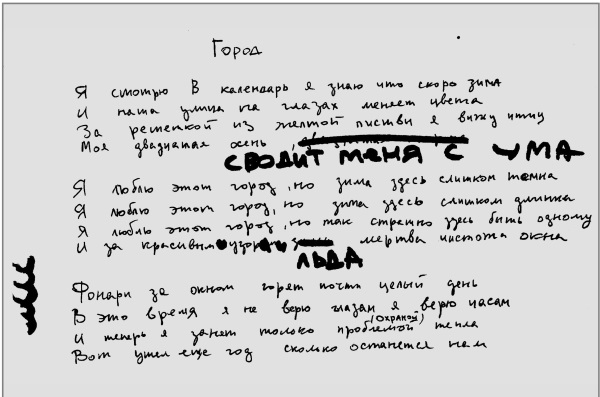 Город
Я смотрю в календарь я знаю что скоро зима
И наша улица на глазах меняет цвета
За решеткой из желтой листвы я вижу птиц
Моя двадцатая осень
СВОДИТ МЕНЯ С УМА
Я люблю этот город, но зима здесь слишком темна
Я люблю этот город, но зима здесь слишком длинна
Я люблю этот город, но так странно здесь быть одному
И за красивым узором мертва чистота окна
ЛЬДА
Фонари за окном горят почти целый день
В это время я не верю глазам я верю часам
(Охраной)
И теперь я занят только проблемой тепла
Вот ушел еще год сколько останется нам